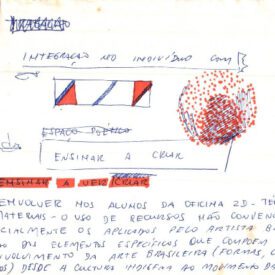 INTEGRAÇÃO NO INDIVÍDUO COM
ESPAÇO POÉTICO
da
ENSINAR A CRIAR
ENSINAR A VER/CRIAR
ENVOLVER NOS ALUNOS DA OFICINA 2D - TE
MATERIAIS - O USO DE RECURSOS NÃO CONVEN
CIALMENTE OS APLICADOS PELO ARTISTA B
DOS ELEMENTOS ESPECÍFICOS QUE COMPOEM
NVOLVIMENTO DA ARTE BRASILEIRA (FORMAS,
OS) DESDE A CULTURA INDÍGENA AO MOVIMENTO DA